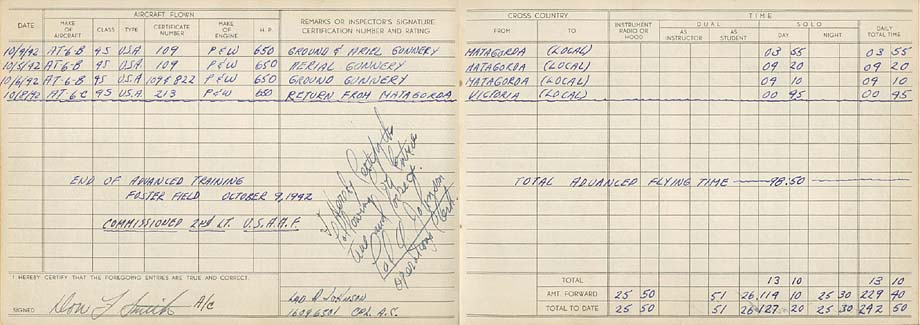 AIRCRAFT FLOWN
DATE
MAKE OF AIRCRAFT
CLASS
TYPE
CERTIFICATE NUMBER
MAKE OF ENGINE
H. P.
REMARKS OR INSPECTOR'S SIGNATURE CERTIFICATION NUMBER AND RATING
AT-6-B 4S U.S.A. 109 P & W 650 GROUND & AERIEL GUNNERY
10/5/42 AT-6-B 4S U.S.A. 109 P & W 650 AERIAL GUNNERY
10/6/42 AT-6-B 4S U.S.A. 109 & 822 P & W 650 GROUND GUNNERY
10/8/42 AT-6-C 4S U.S.A. 213 P & W 650 RETURN FROM MATAGORDA
I Hereby Certify the
following
True and Correct.
Johnson
Operations Clerk.
END OF ADVANCED TRAINING
FOSTER FIELD OCTOBER 9, 1942
COMMISSIONED 2ND LT. U.S.A.A.F.
I HEREBY CERTIFY THAT THE FOREGOING ENTRIES ARE TRUE AND CORRECT.
SIGNED Don L Smith A/C
JOHNSON
CPL. A.S.
CROSS COUNTRY
TIME
FROM
TO
INSTRUMENT RADIO OR HOOD
DUAL
AS INSTRUCTOR
AS STUDENT
SOLO
DAY
NIGHT
DAILY TOTAL TIME
MATAGORDA (LOCAL) 03 55 03 55
MATAGORDA (LOCAL) 04 20 04 20
MATAGORDA (LOCAL) 04 10 04 10
VICTORIA (LOCAL) 00 45 00 45
TOTAL ADVANCED FLYING TIME 98.50
TOTAL 13 10 13 10
AMT. FORWARD 25 50 51 26 114 10 25 30 229 40
TOTAL TO DATE 25 50 51 26 127 20 25 30 242 50